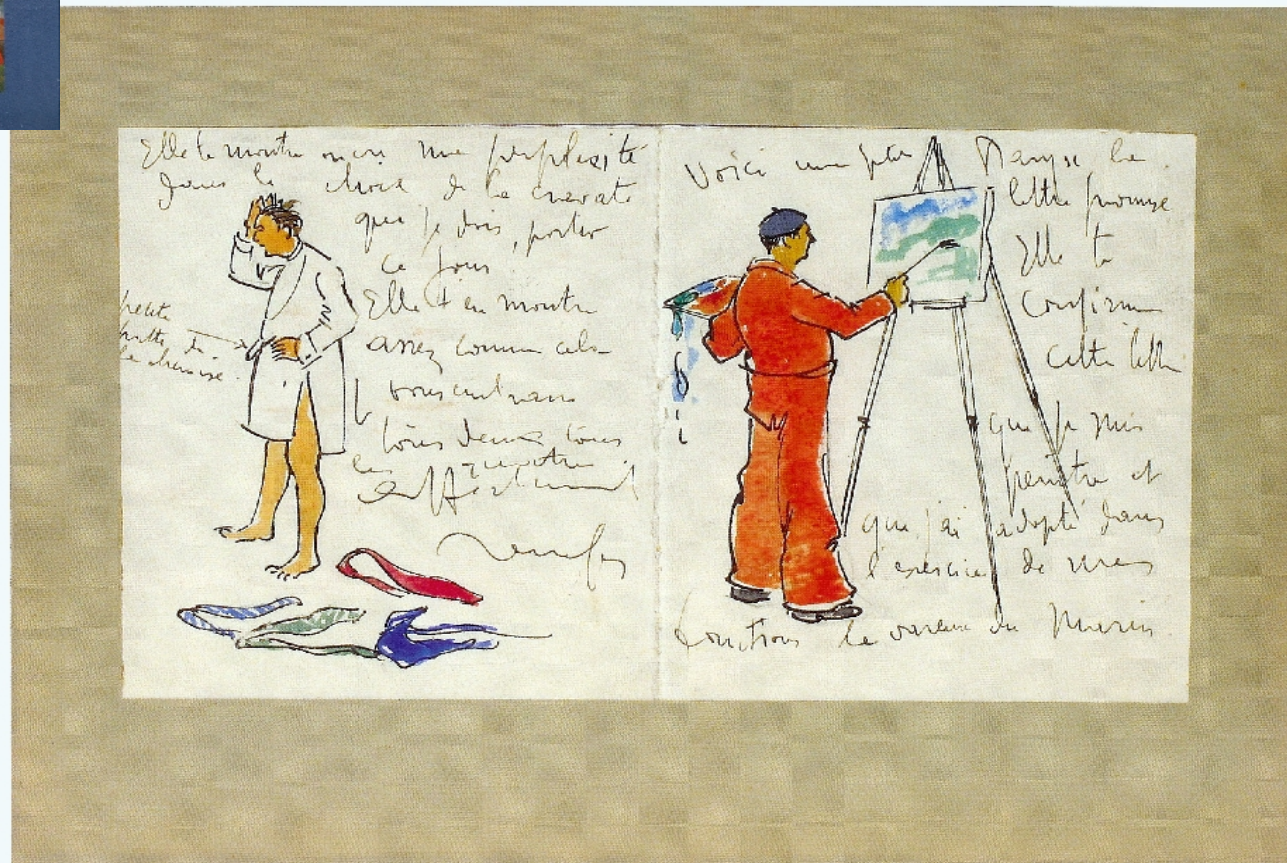 Elle te montre ma perplexité
dans le choix de la cravate
que je dois porter
ce jour
Elle t'en montre
assez comme cela
tous deux tous
les quatre
petite
patte de
la chemise.
Voici ma Maryse la
lettre promise
Elle te
confirme
cette lettre
que je suis
peintre et
que j'ai adopté dans
l'exercice de mes
fonctions la vareuse du Marin.